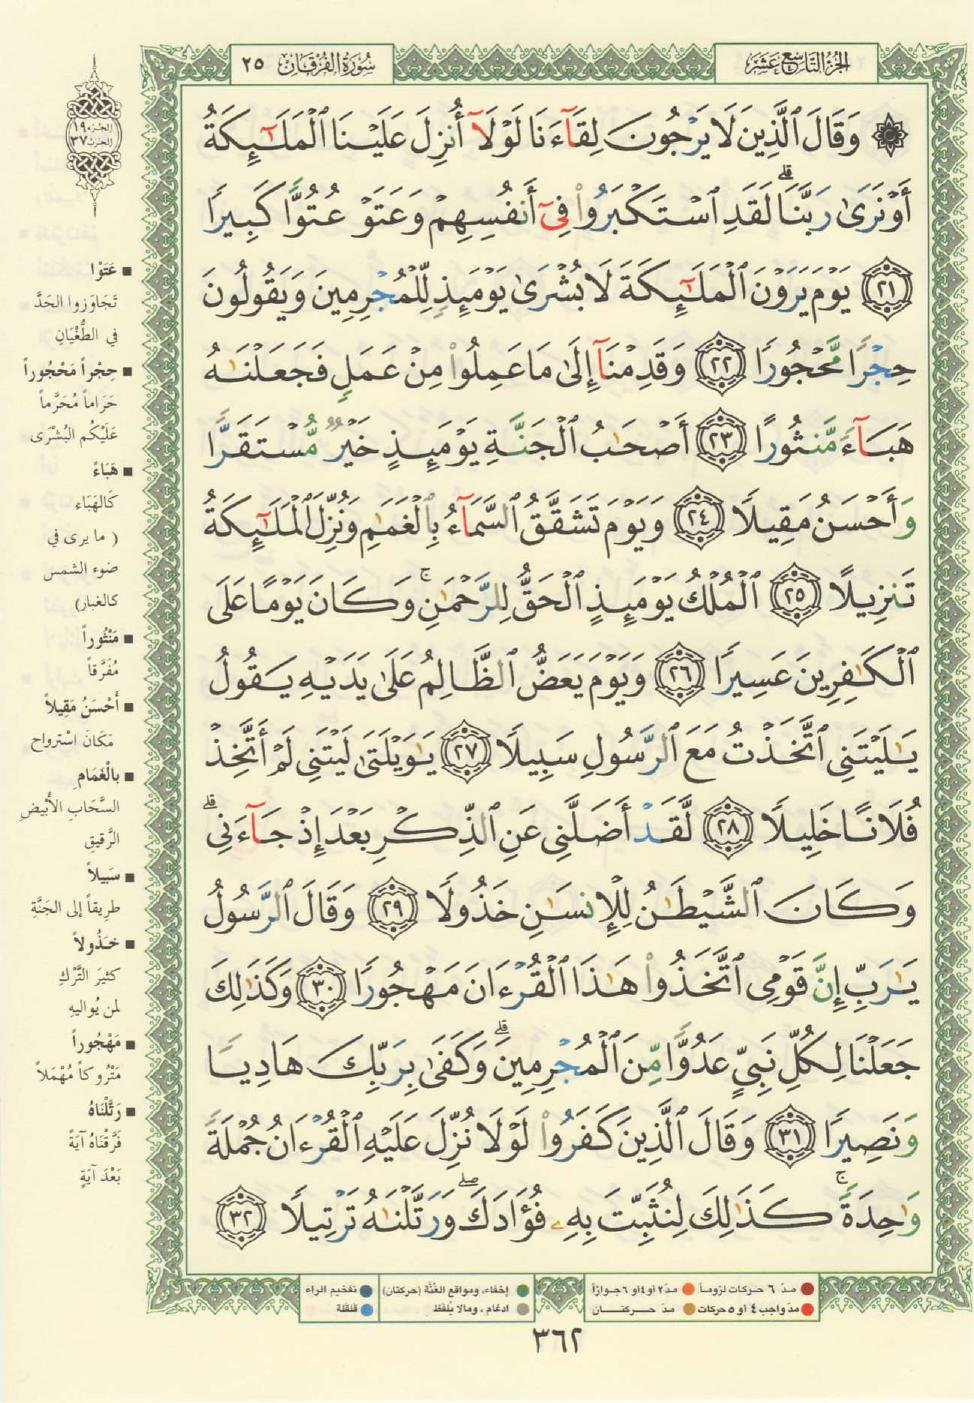 سُورَةُ الفُرْقَان ٢٥
الجُزْءُ التَّاسِعَ عَشَرَ
الجزء ١٩
الحزب ٣٧
۞ وَقَالَ ٱلَّذِينَ لَا يَرْجُونَ لِقَآءَنَا لَوْلَآ أُنزِلَ عَلَيْنَا ٱلْمَلَـٰٓئِكَةُ
أَوْ نَرَىٰ رَبَّنَا ۗ لَقَدِ ٱسْتَكْبَرُوا۟ فِىٓ أَنفُسِهِمْ وَعَتَوْ عُتُوًّا كَبِيرًا
﴿٢١﴾ يَوْمَ يَرَوْنَ ٱلْمَلَـٰٓئِكَةَ لَا بُشْرَىٰ يَوْمَئِذٍ لِّلْمُجْرِمِينَ وَيَقُولُونَ
حِجْرًا مَّحْجُورًا ﴿٢٢﴾ وَقَدِمْنَآ إِلَىٰ مَا عَمِلُوا۟ مِنْ عَمَلٍ فَجَعَلْنَـٰهُ
هَبَآءً مَّنثُورًا ﴿٢٣﴾ أَصْحَـٰبُ ٱلْجَنَّةِ يَوْمَئِذٍ خَيْرٌ مُّسْتَقَرًّا
وَأَحْسَنُ مَقِيلًا ﴿٢٤﴾ وَيَوْمَ تَشَقَّقُ ٱلسَّمَآءُ بِٱلْغَمَـٰمِ وَنُزِّلَ ٱلْمَلَـٰٓئِكَةُ
تَنزِيلًا ﴿٢٥﴾ ٱلْمُلْكُ يَوْمَئِذٍ ٱلْحَقُّ لِلرَّحْمَـٰنِ ۚ وَكَانَ يَوْمًا عَلَى
ٱلْكَـٰفِرِينَ عَسِيرًا ﴿٢٦﴾ وَيَوْمَ يَعَضُّ ٱلظَّالِمُ عَلَىٰ يَدَيْهِ يَقُولُ
يَـٰلَيْتَنِى ٱتَّخَذْتُ مَعَ ٱلرَّسُولِ سَبِيلًا ﴿٢٧﴾ يَـٰوَيْلَتَىٰ لَيْتَنِى لَمْ أَتَّخِذْ
فُلَانًا خَلِيلًا ﴿٢٨﴾ لَّقَدْ أَضَلَّنِى عَنِ ٱلذِّكْرِ بَعْدَ إِذْ جَآءَنِى ۗ
وَكَانَ ٱلشَّيْطَـٰنُ لِلْإِنسَـٰنِ خَذُولًا ﴿٢٩﴾ وَقَالَ ٱلرَّسُولُ
يَـٰرَبِّ إِنَّ قَوْمِى ٱتَّخَذُوا۟ هَـٰذَا ٱلْقُرْءَانَ مَهْجُورًا ﴿٣٠﴾ وَكَذَٰلِكَ
جَعَلْنَا لِكُلِّ نَبِىٍّ عَدُوًّا مِّنَ ٱلْمُجْرِمِينَ ۗ وَكَفَىٰ بِرَبِّكَ هَادِيًا
وَنَصِيرًا ﴿٣١﴾ وَقَالَ ٱلَّذِينَ كَفَرُوا۟ لَوْلَا نُزِّلَ عَلَيْهِ ٱلْقُرْءَانُ جُمْلَةً
وَٰحِدَةً ۚ كَذَٰلِكَ لِنُثَبِّتَ بِهِۦ فُؤَادَكَ ۖ وَرَتَّلْنَـٰهُ تَرْتِيلًا ﴿٣٢﴾
■ عَتَوْا
تَجَاوَزوا الحَدَّ
في الطُّغْيَانِ
■ حِجْراً مَحْجُوراً
حَرَاماً مُحَرَّماً
عَلَيْكُم البُشْرَى
■ هَبَاءً
كَالهَبَاء
( ما يرى في
ضوء الشمس
كالغبار)
■ مَنْثُوراً
مُفَرَّقاً
■ أَحْسَنُ مَقِيلاً
مَكَانَ اسْترواح
■ بالْغَمَامِ
السَّحَابِ الأَبْيَضِ
الرَّقيق
■ سَبيلاً
طريقاً إلى الجَنَّةِ
■ خَذُولاً
كثيرَ التَّركِ
لمن يُواليهِ
■ مَهْجُوراً
مَتْرُوكاً مُهْمَلاً
■ رَتَّلْنَاهُ
فَرَّقْنَاهُ آيَةً
بَعْدَ آيَةٍ
مدّ ٦ حركات لزوماً مدّ ٢ أو ٤ أو ٦ جوازاً
مدّ واجب ٤ أو ٥ حركات مدّ حركتان
إخفاء، ومواقع الغُنَّة (حركتان) تفخيم الراء
ادغام ، ومالا يُلفظ قلقلة
٣٦٢